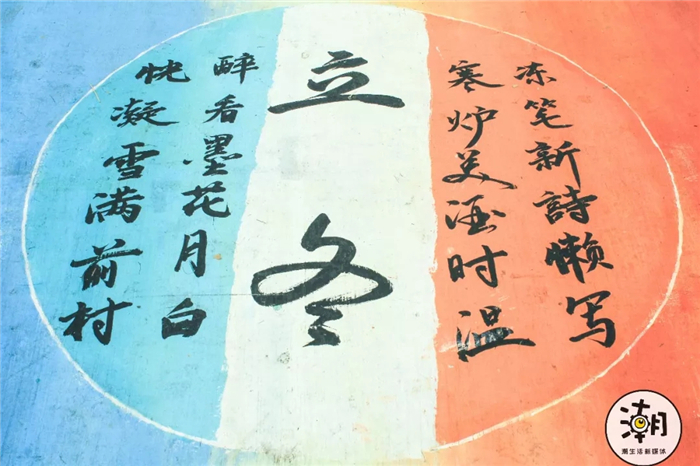 冻笔新詩懒写
寒炉美酒时温
立冬
醉看墨花月白
恍凝雪满前村
潮
潮生活新媒体